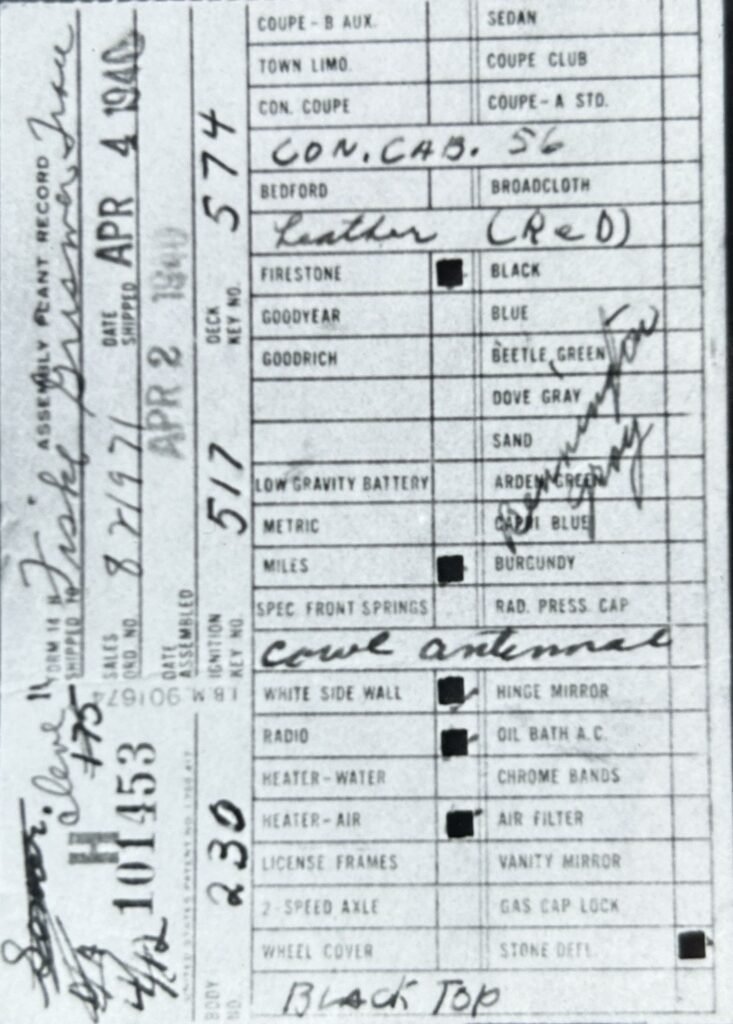 ASSEMBLY PLANT RECORD
FORM 14 H
SHIPPED TO Fiske
SALES ORD. NO. 821971
DATE SHIPPED APR 4 1940
DATE ASSEMBLED APR 2 1940
IGNITION KEY NO. 517
DECK KEY NO. 574
BODY NO. 230
IBM 901674
UNITED STATES PATENT NO. 1,780,417
Cleve
175
H
101453
4/12
COUPE-B AUX. SEDAN
TOWN LIMO. COUPE CLUB
CON. COUPE COUPE-A STD.
CON. CAB. 56
BEDFORD BROADCLOTH
Leather (ReD)
FIRESTONE BLACK
GOODYEAR BLUE
GOODRICH BEETLE GREEN
DOVE GRAY
SAND
LOW GRAVITY BATTERY ARDEN GREEN
METRIC CAPRI BLUE
MILES BURGUNDY
Remington Gray
SPEC. FRONT SPRINGS RAD. PRESS. CAP
Cowl antennae
WHITE SIDE WALL HINGE MIRROR
RADIO OIL BATH A.C.
HEATER-WATER CHROME BANDS
HEATER-AIR AIR FILTER
LICENSE FRAMES VANITY MIRROR
2-SPEED AXLE GAS CAP LOCK
WHEEL COVER STONE DEFL.
BLACK TOP